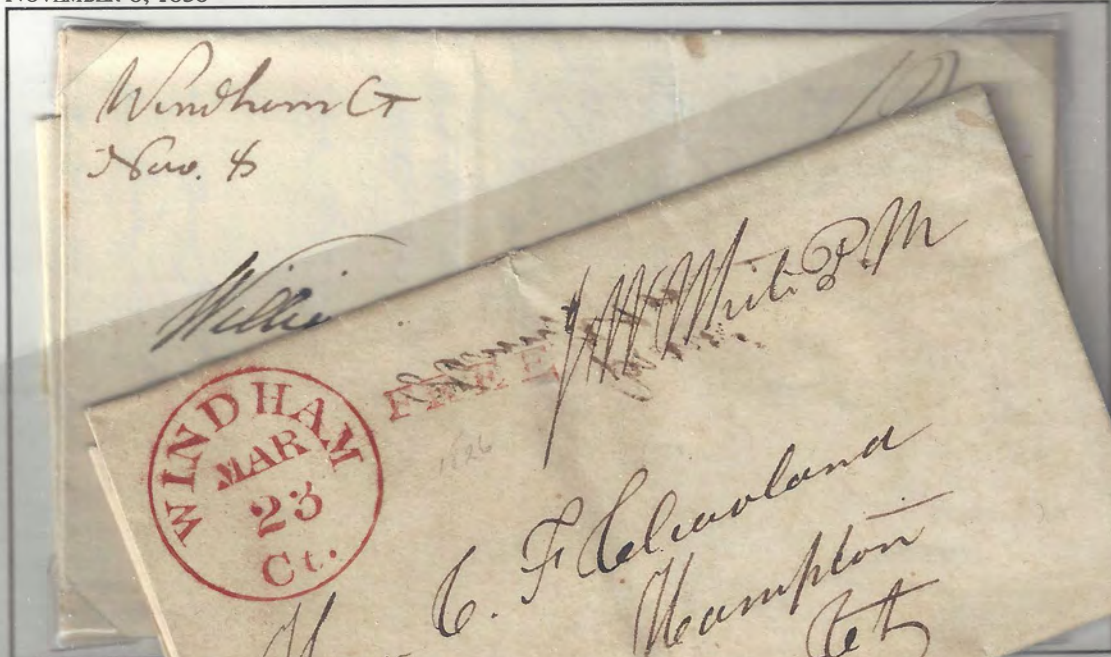 Windham Ct
Nov. 8
10
Willia
J W White P.M
FREE
WINDHAM
MAR
23
Ct.
1826
C. F Cleaveland
Hampton
Ct